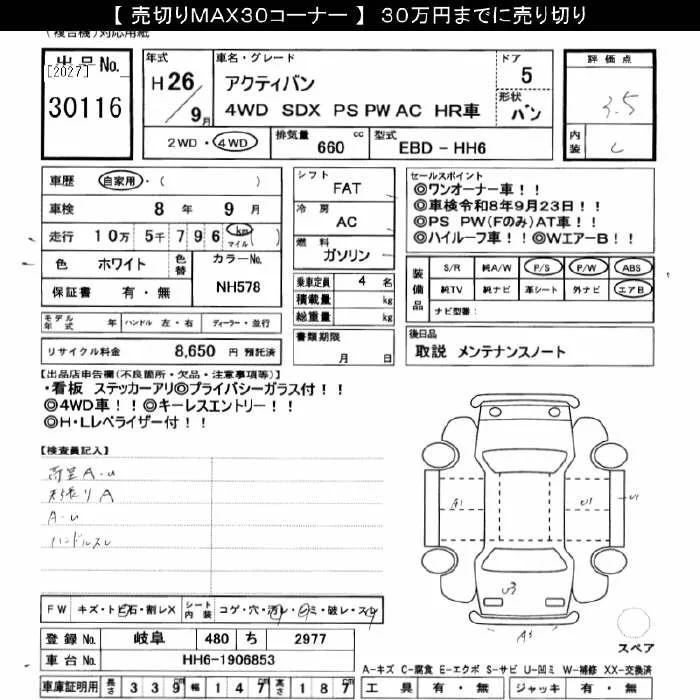 【 売切りMAX30コーナー 】 30万円までに売り切り
(複合機)対応用紙
出品No.
[2027]
30116
年式
H26/9月
車名・グレード
アクティバン
4WD SDX PS PW AC HR車
ドア
5
形状
バン
2WD・4WD
排気量
660 cc
型式
EBD - HH6
評価点
3.5
内装
C
車歴 自家用・( )
車検 8年 9月
走行 10万 5千 796 km マイル ( )
色 ホワイト
色替
カラーNo.
NH578
保証書 有・無
シフト
FAT
冷房
AC
燃料
ガソリン
乗車定員 4 名
積載量 kg
総重量 kg
書類期限
月 日
セールスポイント
◎ワンオーナー車!!
◎車検令和8年9月23日!!
◎PS PW(Fのみ)AT車!!
◎ハイルーフ車!!◎WエアーB!!
装備品
S/R 純A/W P/S P/W ABS
純TV 純ナビ 革シート 外ナビ エアB
ナビ型番:
モデル年式 年 ハンドル 左・右 ディーラー・並行
リサイクル料金 8,650 円 預託済
後日品
取説 メンテナンスノート
【出品店申告欄(不良箇所・欠品・注意事項等)】
・看板 ステッカーアリ◎プライバシーガラス付!!
◎4WD車!!◎キーレスエントリー!!
◎H・Lレベライザー付!!
【検査員記入】
荷室A・U
内張りA
A・U
ハンドルスレ
A1
U1
U1
U3
A3
スペア
FW キズ・トビ石・割レX シート内装 コゲ・穴・汚レ・シミ・破レ・スレ
登録No. 岐阜 480 ち 2977
車台No. HH6-1906853
車庫証明用 長さ 339 幅 147 高さ 187
A-キズ C-腐食 E-エクボ S-サビ U-凹ミ W-補修 XX-交換済
工具 有・無 ジャッキ 有・無